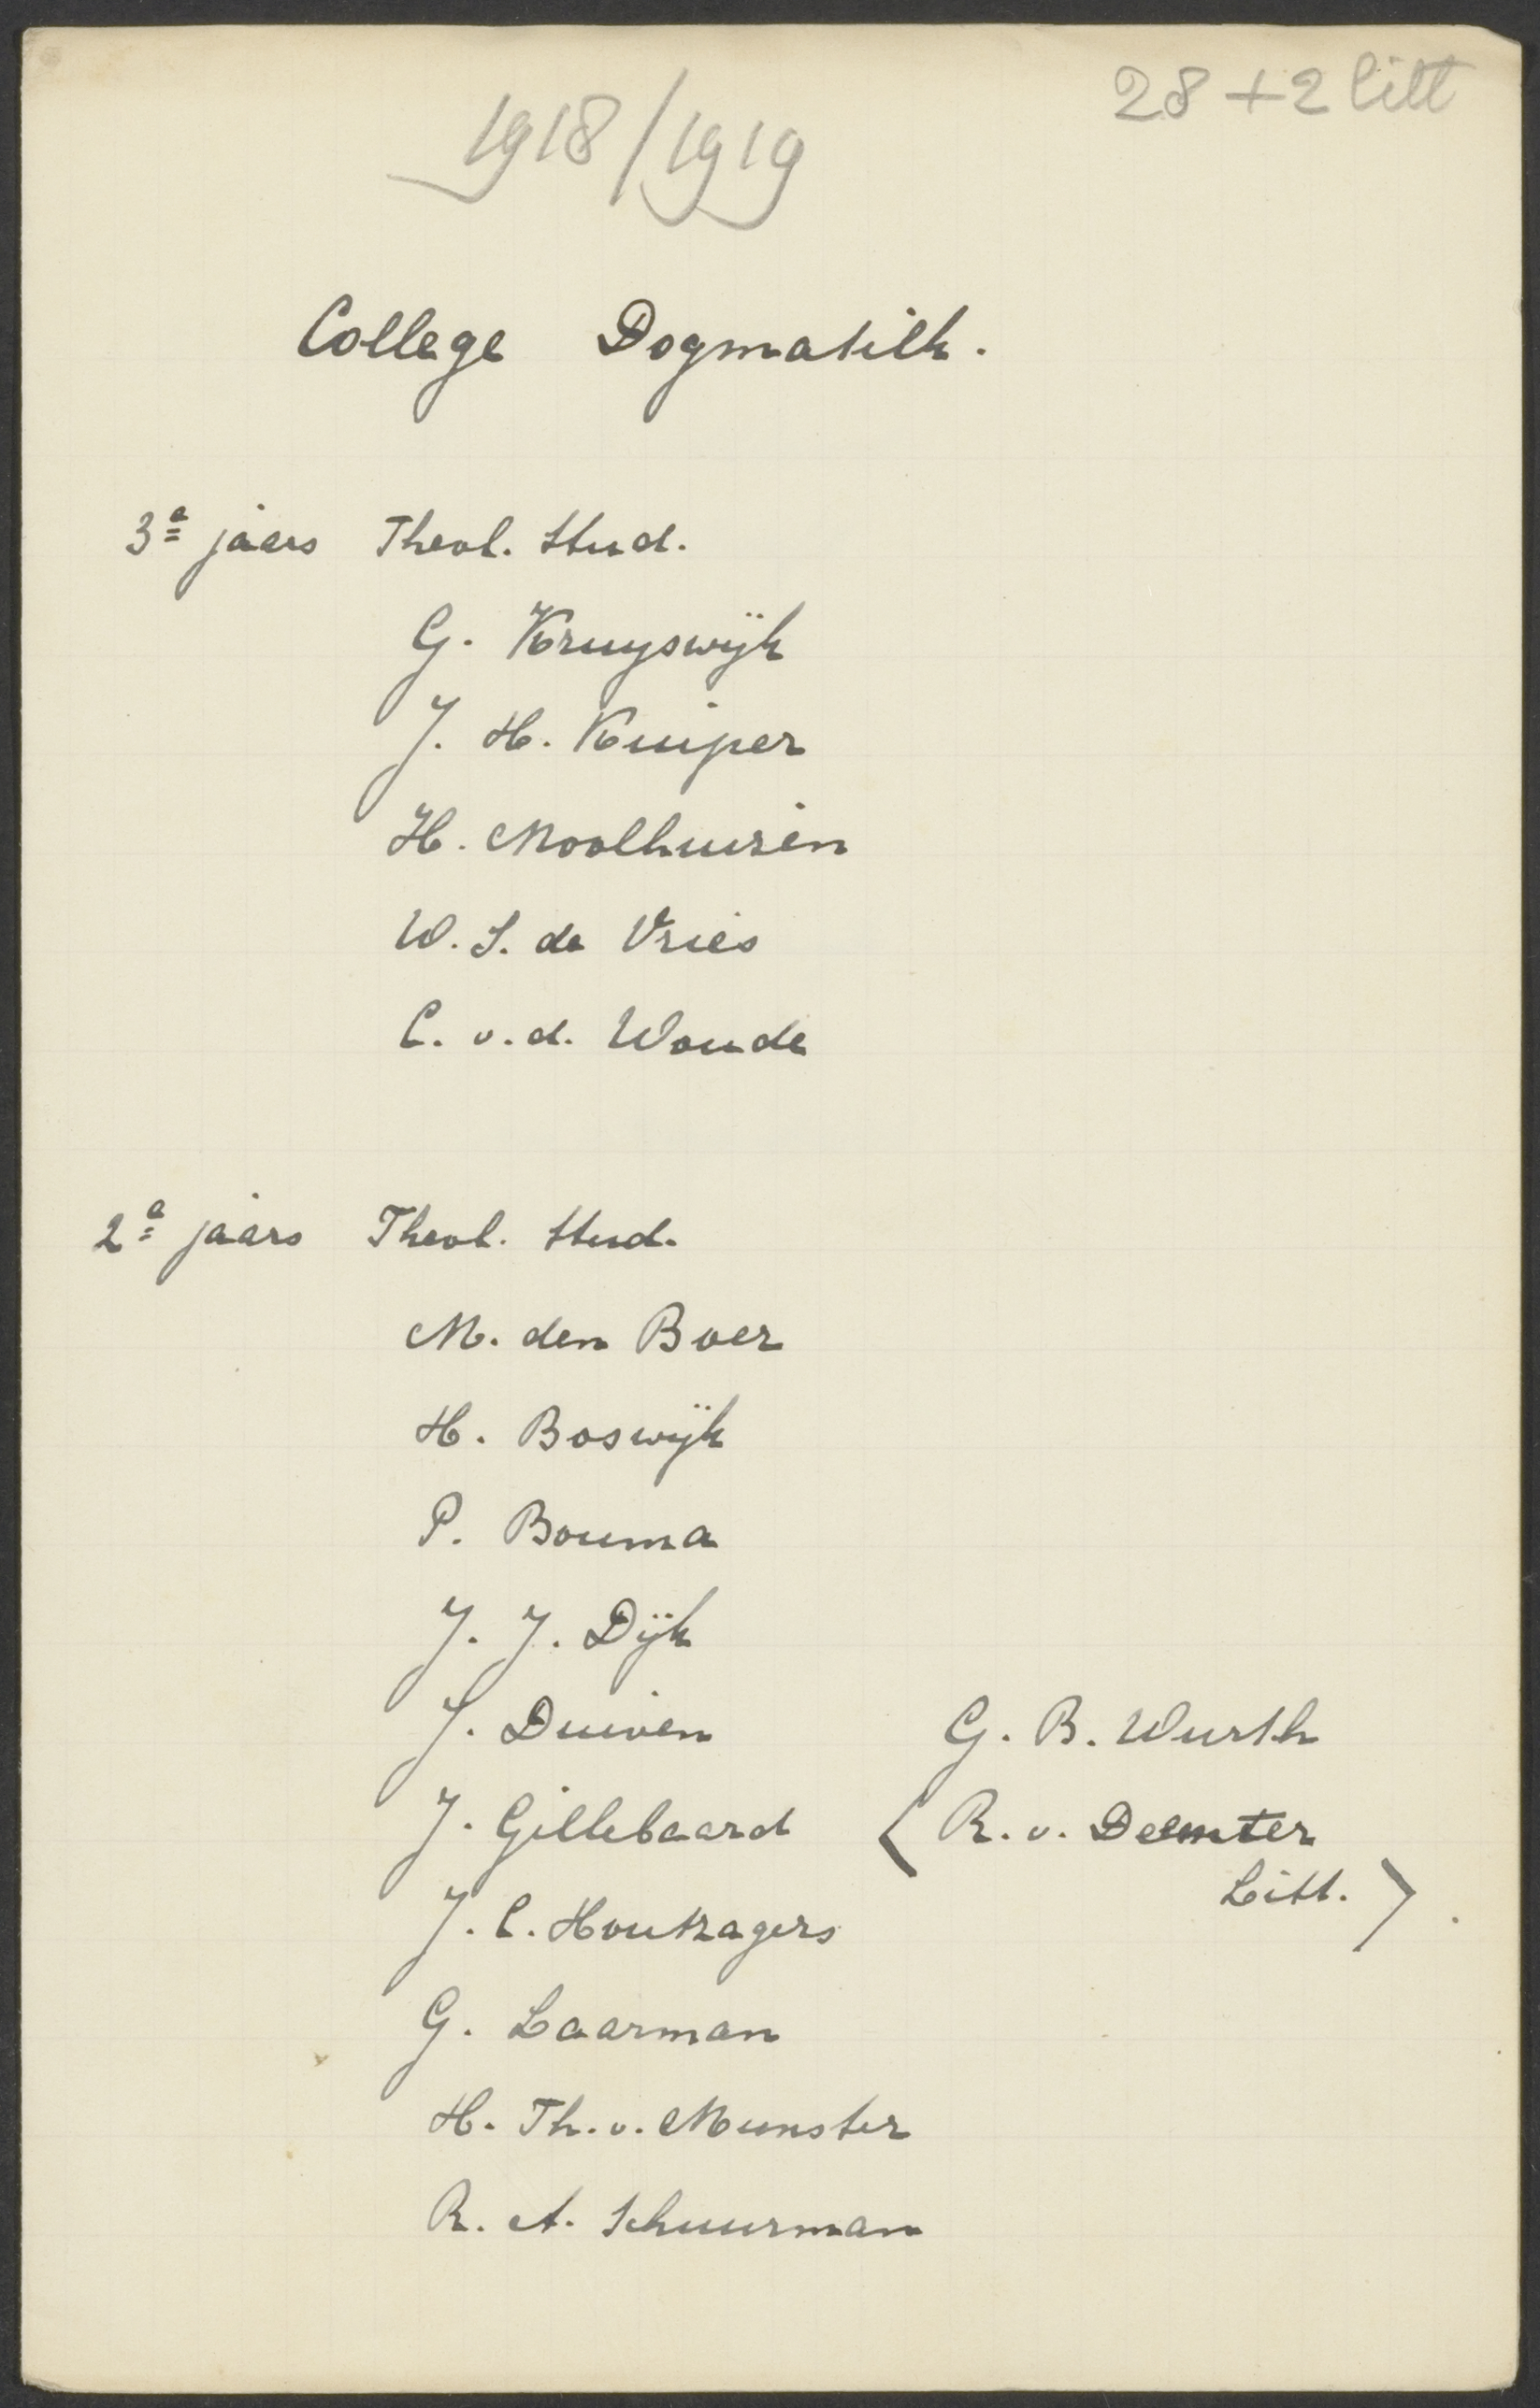 28 + 2 litt
1918/1919
College Dogmatiek.
3e jaars Theol. Stud.
G. Kruyswijk
J. H. Kuiper
H. Moolhuizen
W. S. de Vries
C. v. d. Woude
2e jaars Theol. Stud.
M. den Boer
H. Boswijk
P. Bouma
J. J. Dijk
J. Duiven
J. Gillebaard
J. C. Houtzagers
G. Laarman
H. Th. v. Munster
R. A. Schuurman
G. B. Wurth
< R. v. Deemter
Litt. >